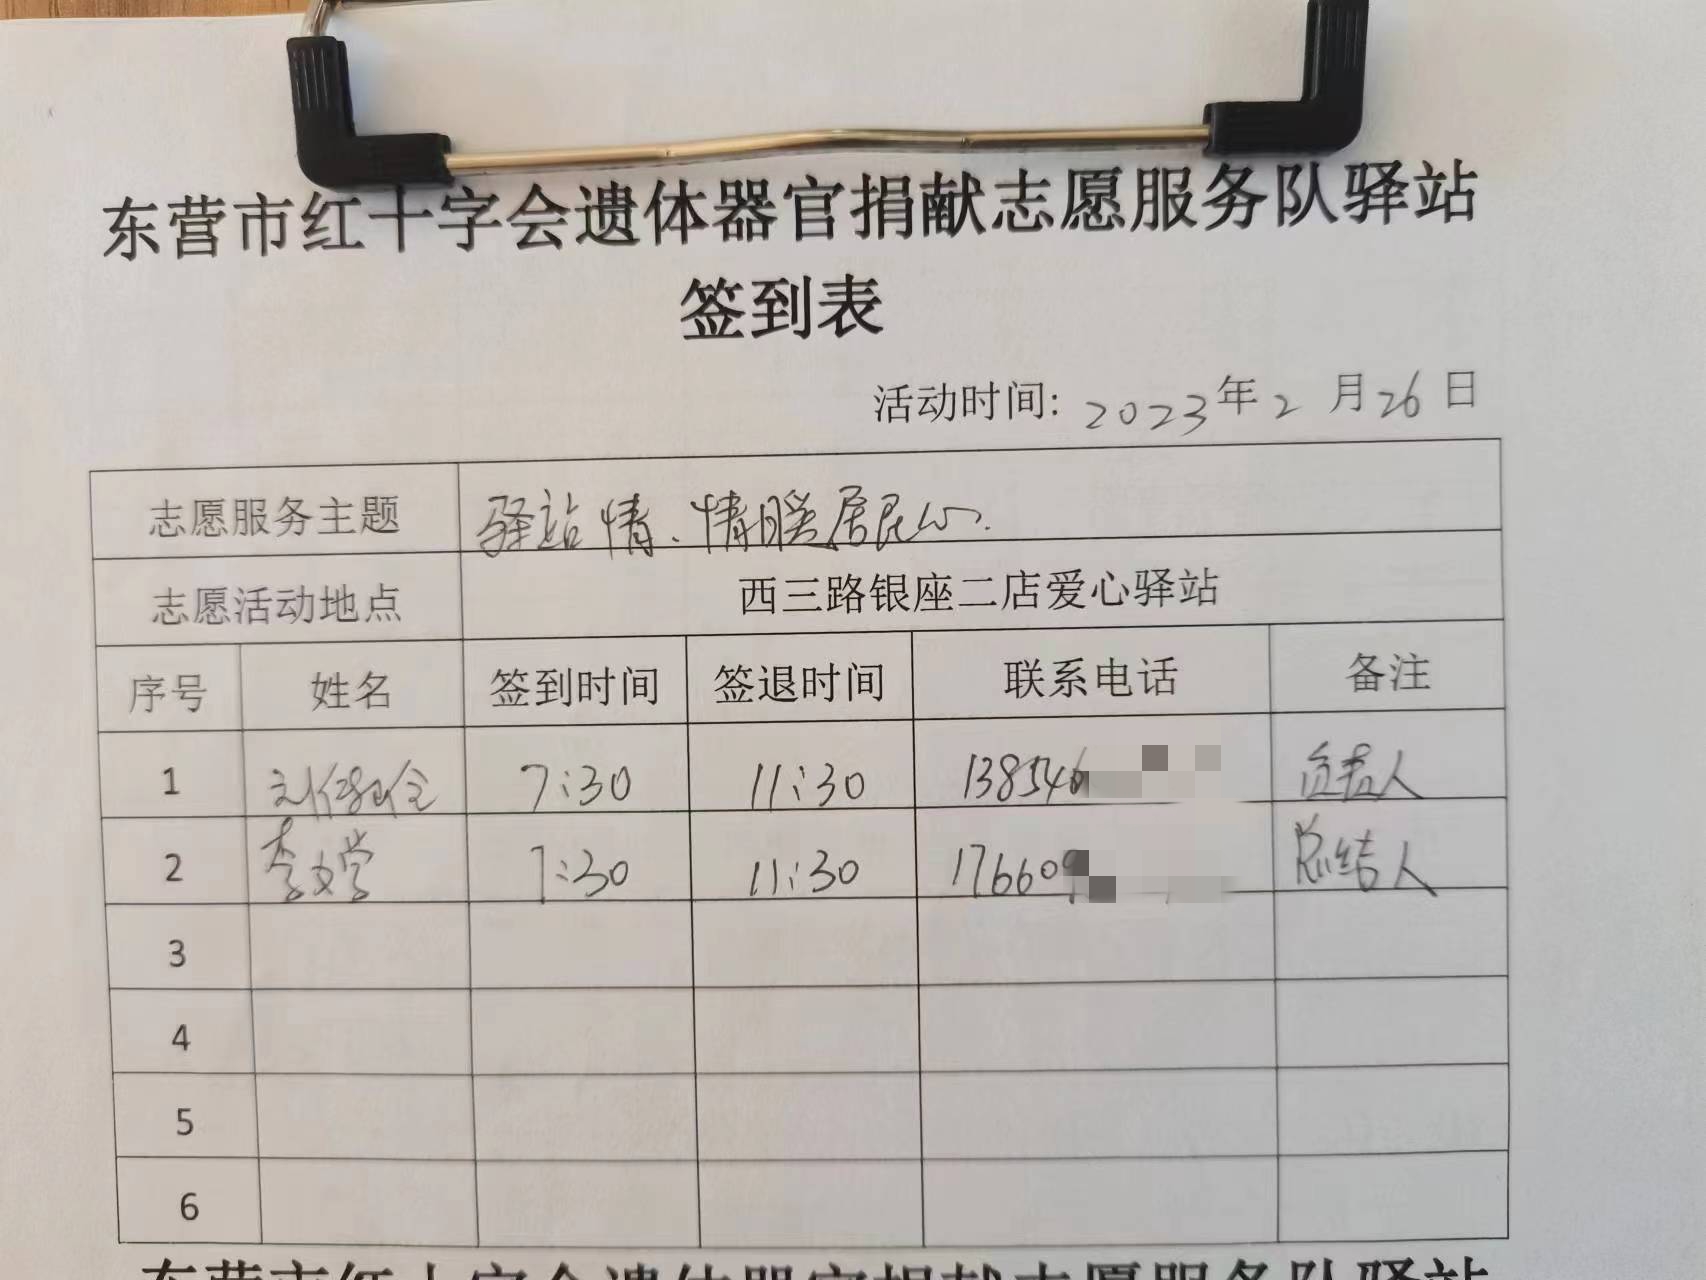 东营市红十字会遗体器官捐献志愿服务队驿站
签到表
活动时间: 2023年2月26日
志愿服务主题 驿站情、情暖居民心.
志愿活动地点 西三路银座二店爱心驿站
序号 姓名 签到时间 签退时间 联系电话 备注
1 刘 7:30 11:30 138546 负责人
2 李文学 7:30 11:30 176609 总结人
3
4
5
6
东营市红十字会遗体器官捐献志愿服务队驿站